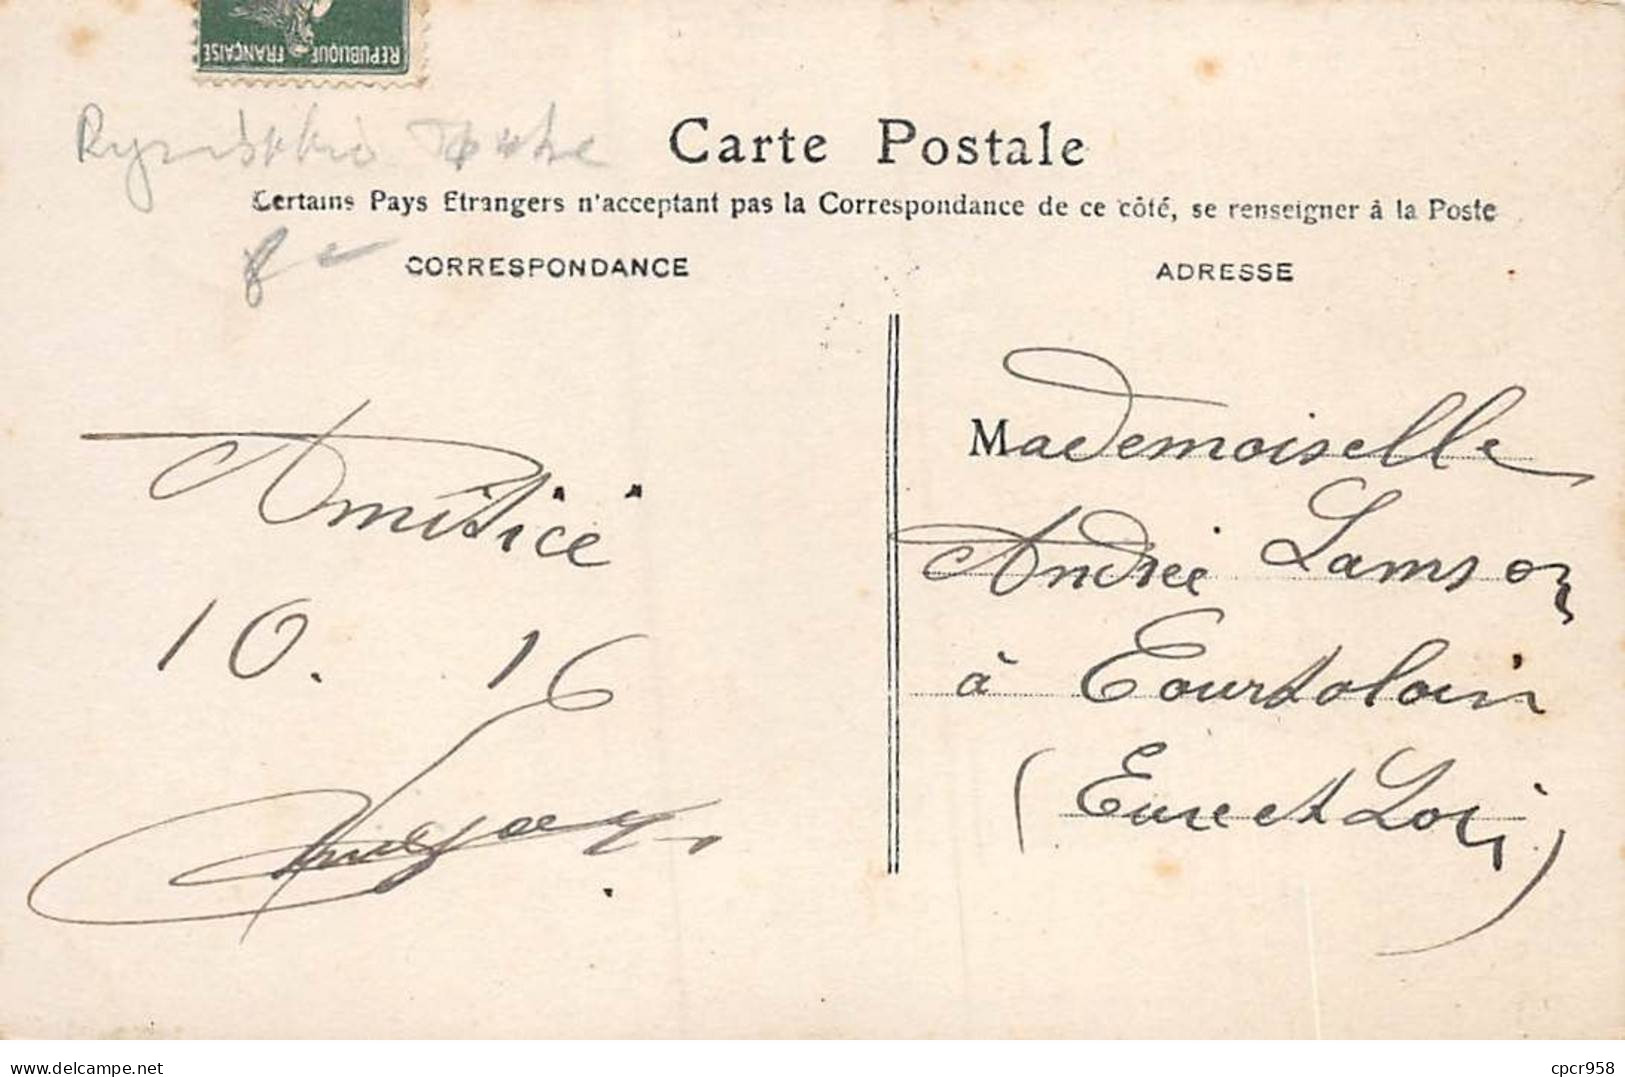 REPUBLIQUE FRANÇAISE
Carte Postale
Certains Pays Etrangers n'acceptant pas la Correspondance de ce côté, se renseigner à la Poste
CORRESPONDANCE
ADRESSE
Amitié
10. 16
Mademoiselle
Andrée Lamson
à Courtalain
(Eure et Loir)
www.delcampe.net
cpcr958